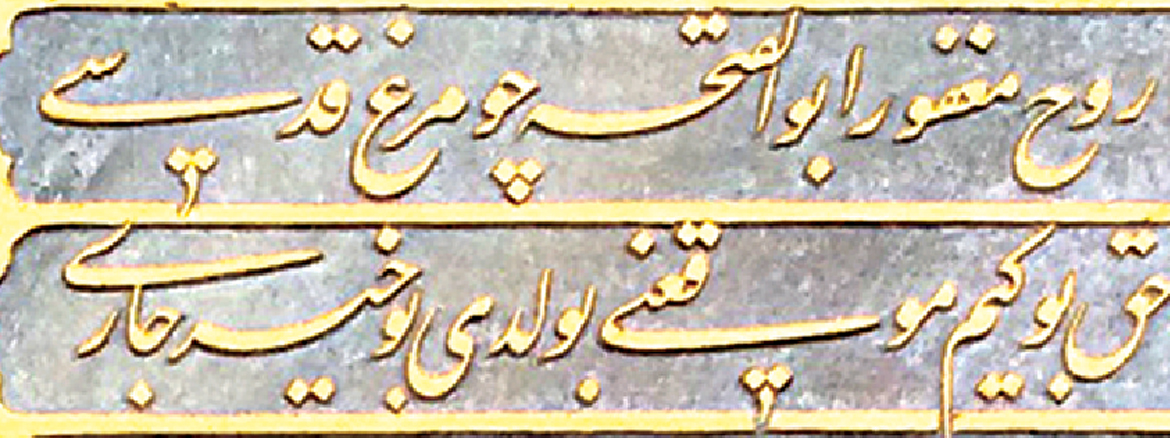 روح مغفور ابوالفتحه چو مرغ قدسی
حق بو كیم موقعنی بولدی بو خیر جاری